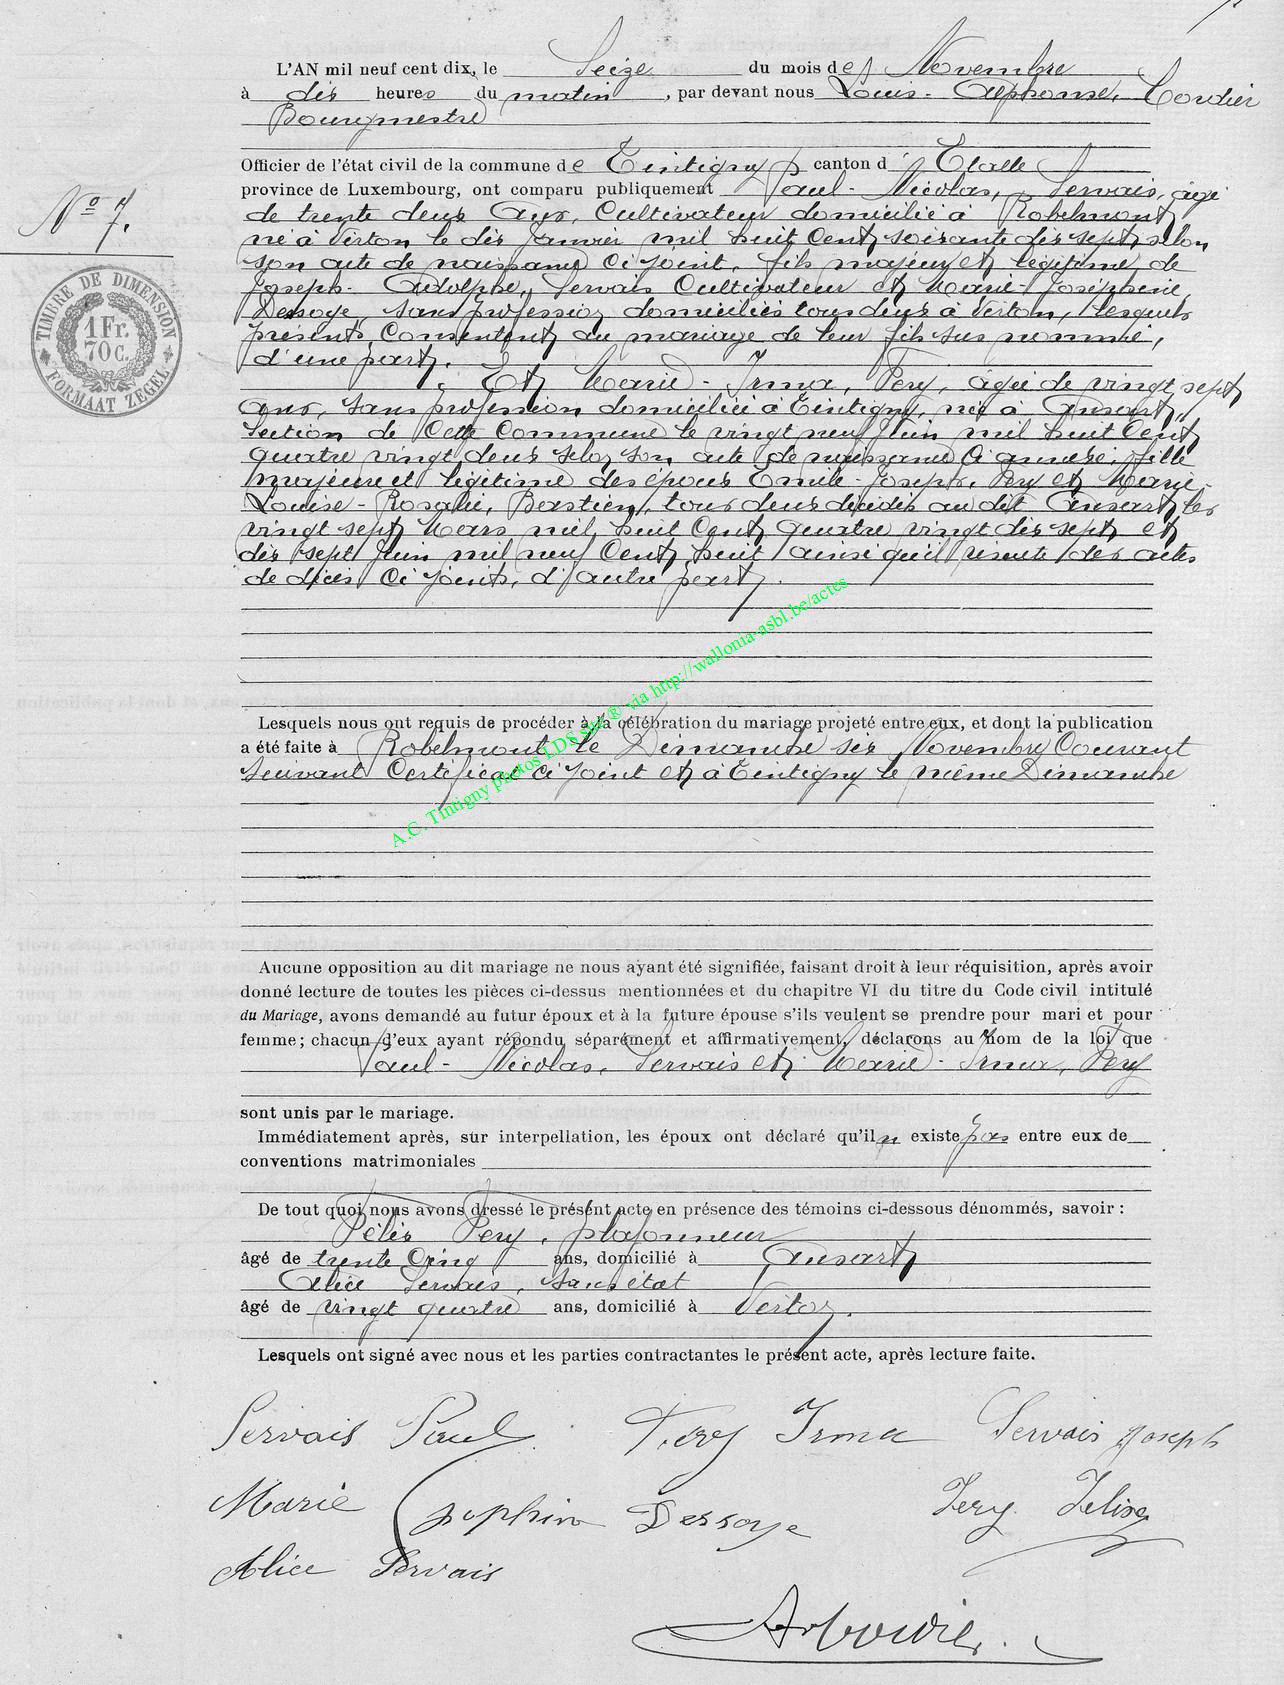 L'AN mil neuf cent dix, le Seize du mois de Novembre
à dix heures du matin, par devant nous Louis-Alphonse, Cordier
Bourgmestre
Officier de l'état civil de la commune de Tintigny canton d'Etalle
province de Luxembourg, ont comparu publiquement Paul-Nicolas, Servais, âgé
N° 7.
de trente deux ans, Cultivateur domicilié à Robelmont
né à Virton le dix Janvier mil huit Cent soixante dix sept selon
son acte de naissance ci joint, fils majeur et légitime de
Joseph-Adolphe, Servais Cultivateur et Marie Joséphine,
Dessoye, sans profession domiciliés tous deux à Virton, lesquels
présents Consentent au mariage de leur fils sus nommé,
d'une part.
TIMBRE DE DIMENSION
1 Fr.
70 C.
FORMAAT ZEGEL
Et Marie-Irma, Fery, âgée de vingt sept
ans, sans profession domiciliée à Tintigny, née à Ansart,
Section de Cette Commune le vingt neuf Juin mil huit Cent
quatre vingt deux selon son acte de naissance ci annexé, fille
majeure et légitime des époux Emile-Joseph, Fery et Marie-
Louise-Rosalie, Bastien, tous deux décédés au dit Ansart les
vingt sept Mars mil huit Cent quatre vingt dix sept et
dix sept Juin mil neuf Cent huit ainsi qu'il résulte des actes
de décès ci joints, d'autre part.
A.C. Tintigny photos LDS site ® via http://wallonia-asbl.be/actes
Lesquels nous ont requis de procéder à la célébration du mariage projeté entre eux, et dont la publication
a été faite à Robelmont le Dimanche six Novembre Courant
suivant Certificat ci joint et à Tintigny le même Dimanche
Aucune opposition au dit mariage ne nous ayant été signifiée, faisant droit à leur réquisition, après avoir
donné lecture de toutes les pièces ci-dessus mentionnées et du chapitre VI du titre du Code civil intitulé
du Mariage, avons demandé au futur époux et à la future épouse s'ils veulent se prendre pour mari et pour
femme; chacun d'eux ayant répondu séparément et affirmativement, déclarons au nom de la loi que
Paul-Nicolas, Servais et Marie-Irma, Fery
sont unis par le mariage.
Immédiatement après, sur interpellation, les époux ont déclaré qu'il n existe pas entre eux de
conventions matrimoniales
De tout quoi nous avons dressé le présent acte en présence des témoins ci-dessous dénommés, savoir :
Félix Fery, plafonneur
âgé de trente Cinq ans, domicilié à Ansart
Alice Servais, sans état
âgé de vingt quatre ans, domicilié à Virton.
Lesquels ont signé avec nous et les parties contractantes le présent acte, après lecture faite.
Servais Paul Fery Irma Servais Joseph
Marie Josephine Dessoye Fery Félix
Alice Servais